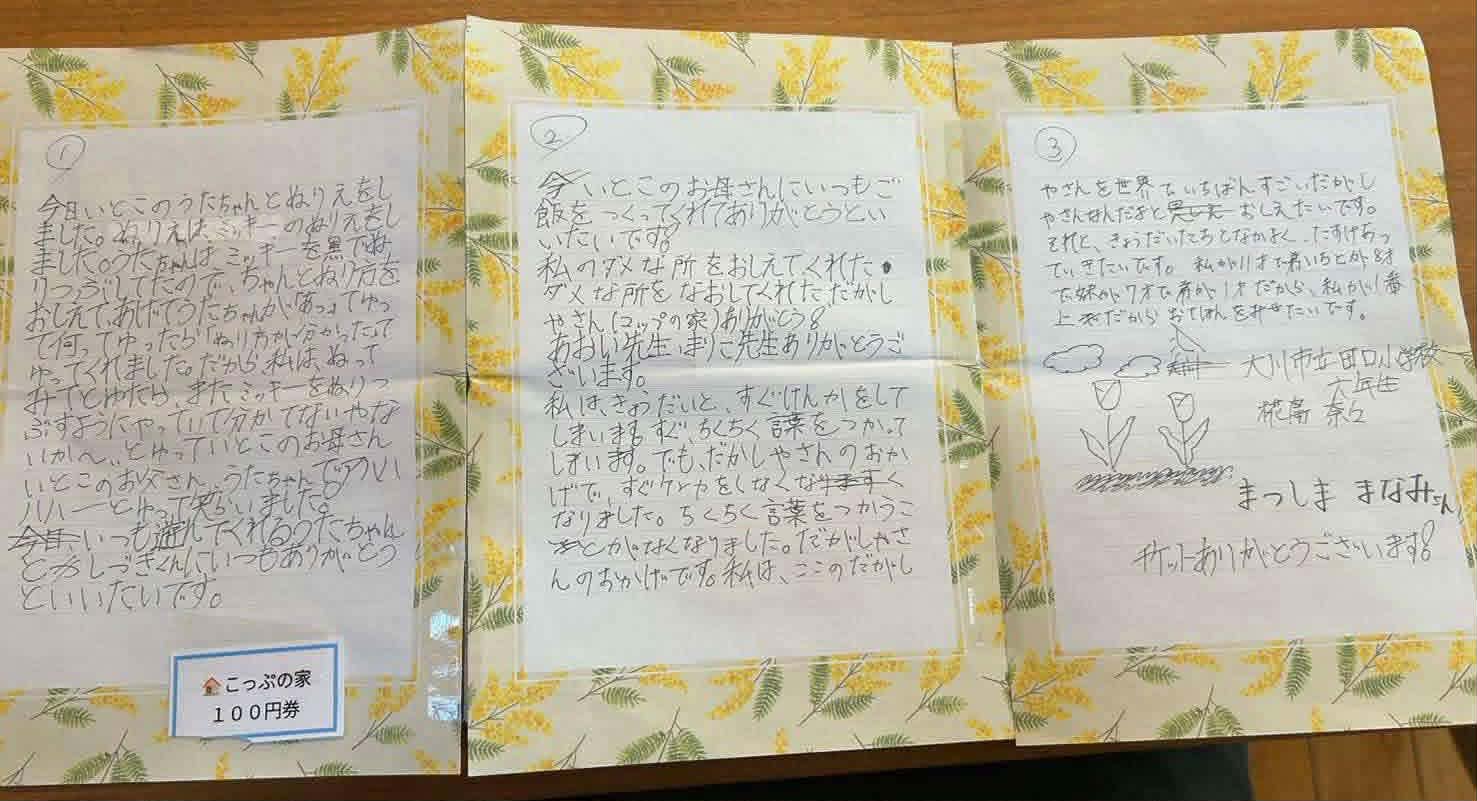 ①
今日いとこのうたちゃんとぬりえをし
ました。ぬりえは、ミッキーのぬりえをし
ました。うたちゃんは、ミッキーを黒でぬ
りつぶしてたので、ちゃんとぬり方を
おしえてあげてうたちゃんが「あっ」てゆっ
て何ってゆったら「ぬり方が分かった」って
ゆってくれました。だから、私は、ぬって
みてとゆたら、またミッキーをぬりつ
ぶすようにやっていて分かてないやな
いか〜、、とゆっていとこのお母さん
いとこのお父さん、うたちゃんでアハハ
ハハーとゆって笑らいました。
今日いつも遊んでくれるうたちゃん
といいたいです。
こっぷの家
100円券
②
今いとこのお母さんにいつもご
飯をつくってくれてありがとうとい
いたいです。
私のダメな所をおしえてくれた
ダメな所をなおしてくれただがし
やさん(コップの家)ありがとう!
あおい先生、まりこ先生ありがとうご
ざいます。
私は、きょうだいと、すぐけんかをして
しまいます。すぐ、ちくちく言葉をつかって
しまいます。でも、だがしやさんのおか
げで、すぐケンカをしなくなりますく
なりました。ちくちく言葉をつかうこ
とがなくなりました。だがしやさ
んのおかげです。私は、ここのだがし
③
やさんを世界でいちばんすごいだがし
やさんなんだよと思いた おしえたいです。
それと、きょうだいたちとなかよく、たすけあっ
ていきたいです。私が11才で君いちとが8才
で妹が7才で弟が1才だから、私が1番
上だから おてほんをみせたいです。
大川市立田口小学校
六年生
奈々
まつしま まなみさん
チケットありがとうございます!